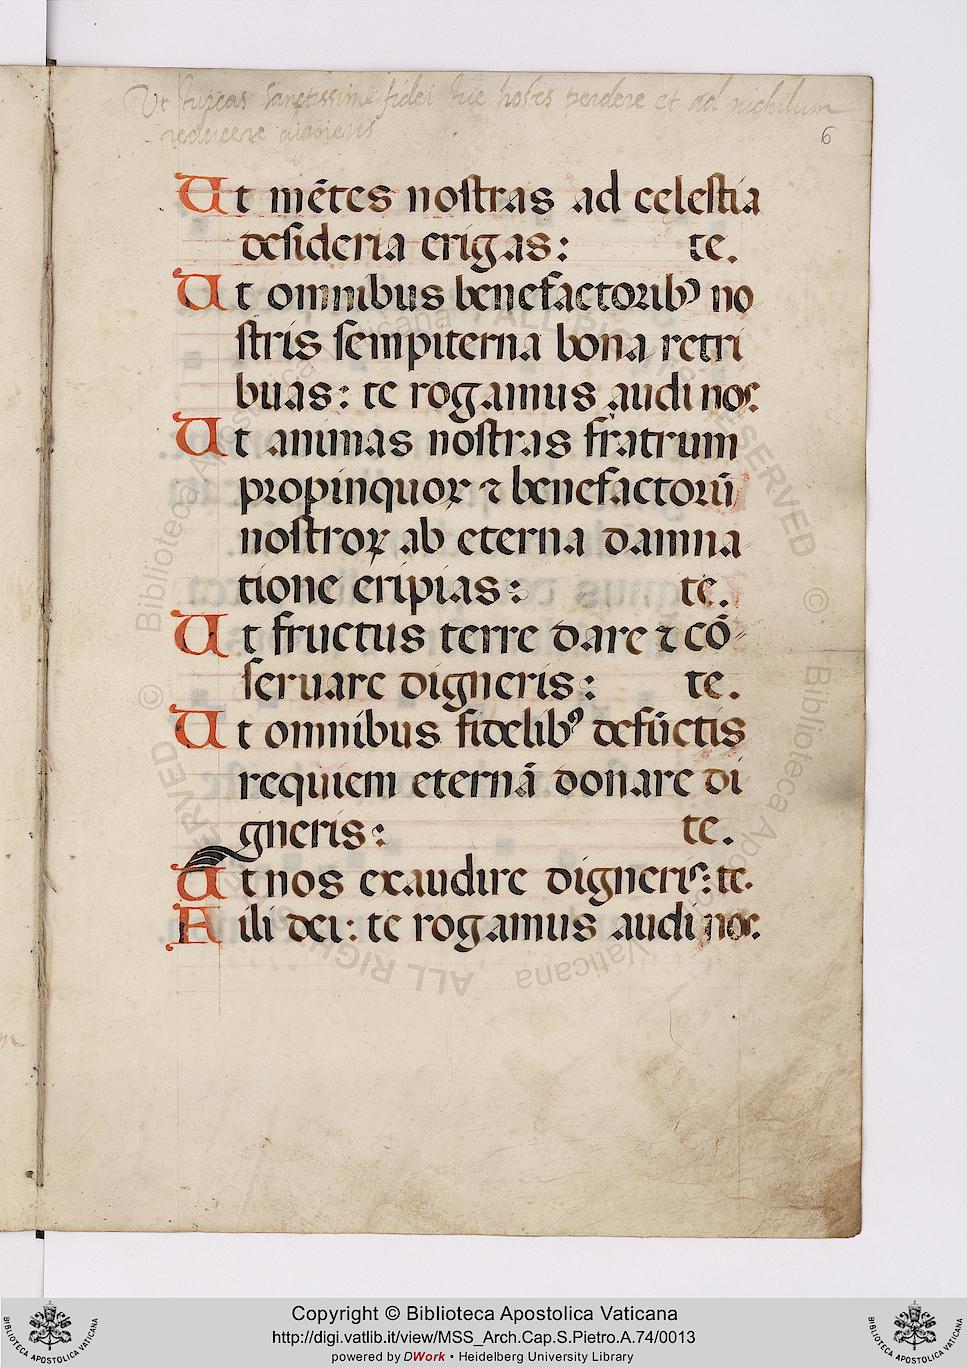 Ut turcas sanctissime fidei tue hostes perdere et ad nichilum
reducere digneris
6
Ut mētes noſtras ad celeſtia
deſideria erigas: te.
Ut omnibus benefactoribꝰ no
ſtris ſempiterna bona retri
buas: te rogamus audi nos:
Ut animas noſtras fratrum
propinquoꝝ ⁊ benefactorū
noſtroꝝ ab eterna damna
tione eripias: te.
Ut fructus terre dare ⁊ cō
ſeruare digneris: te.
Ut omnibus fidelibꝰ defūctis
requiem eternā donare di
gneris: te.
Ut nos exaudire digneris: te.
Fili dei: te rogamus audi nos:
© Biblioteca Apostolica Vaticana ALL RIGHTS RESERVED
© Biblioteca Apostolica Vaticana ALL RIGHTS RESERVED
Copyright © Biblioteca Apostolica Vaticana
http://digi.vatlib.it/view/MSS_Arch.Cap.S.Pietro.A.74/0013
powered by DWork • Heidelberg University Library
BIBLIOTECA APOSTOLICA VATICANA
BIBLIOTECA APOSTOLICA VATICANA